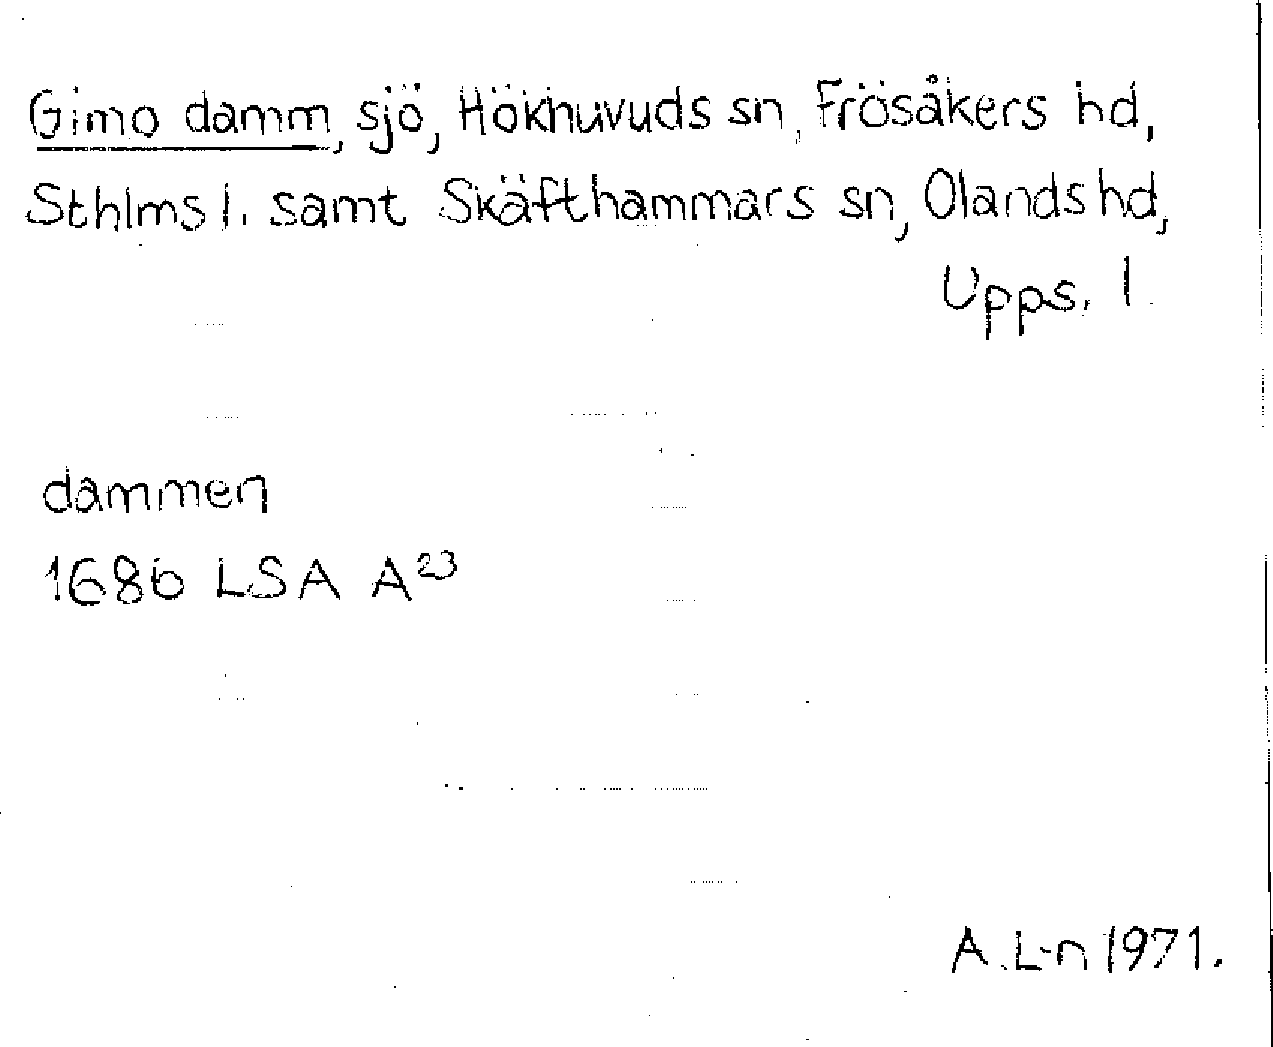 Gimo damm, sjö, Hökhuvuds sn, Frösåkers hd,
Sthlms l. samt Skäfthammars sn, Olands hd,
Upps. l.
dammen
1686 LSA A23
A.L-n 1971.